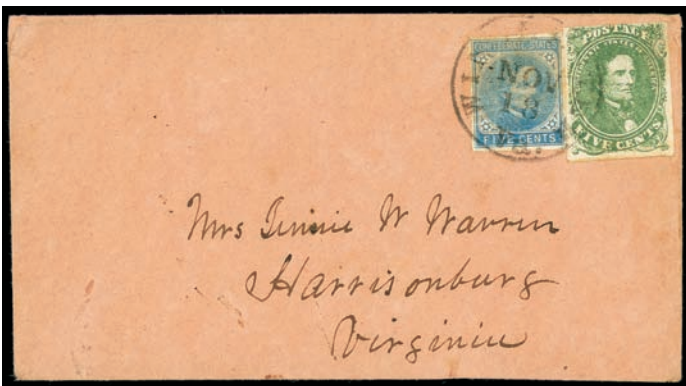 CONFEDERATE STATES
FIVE CENTS
POSTAGE
FIVE CENTS
NOV
13
Va.
Mrs Jennie W Warren
Harrisonburg
Virginia